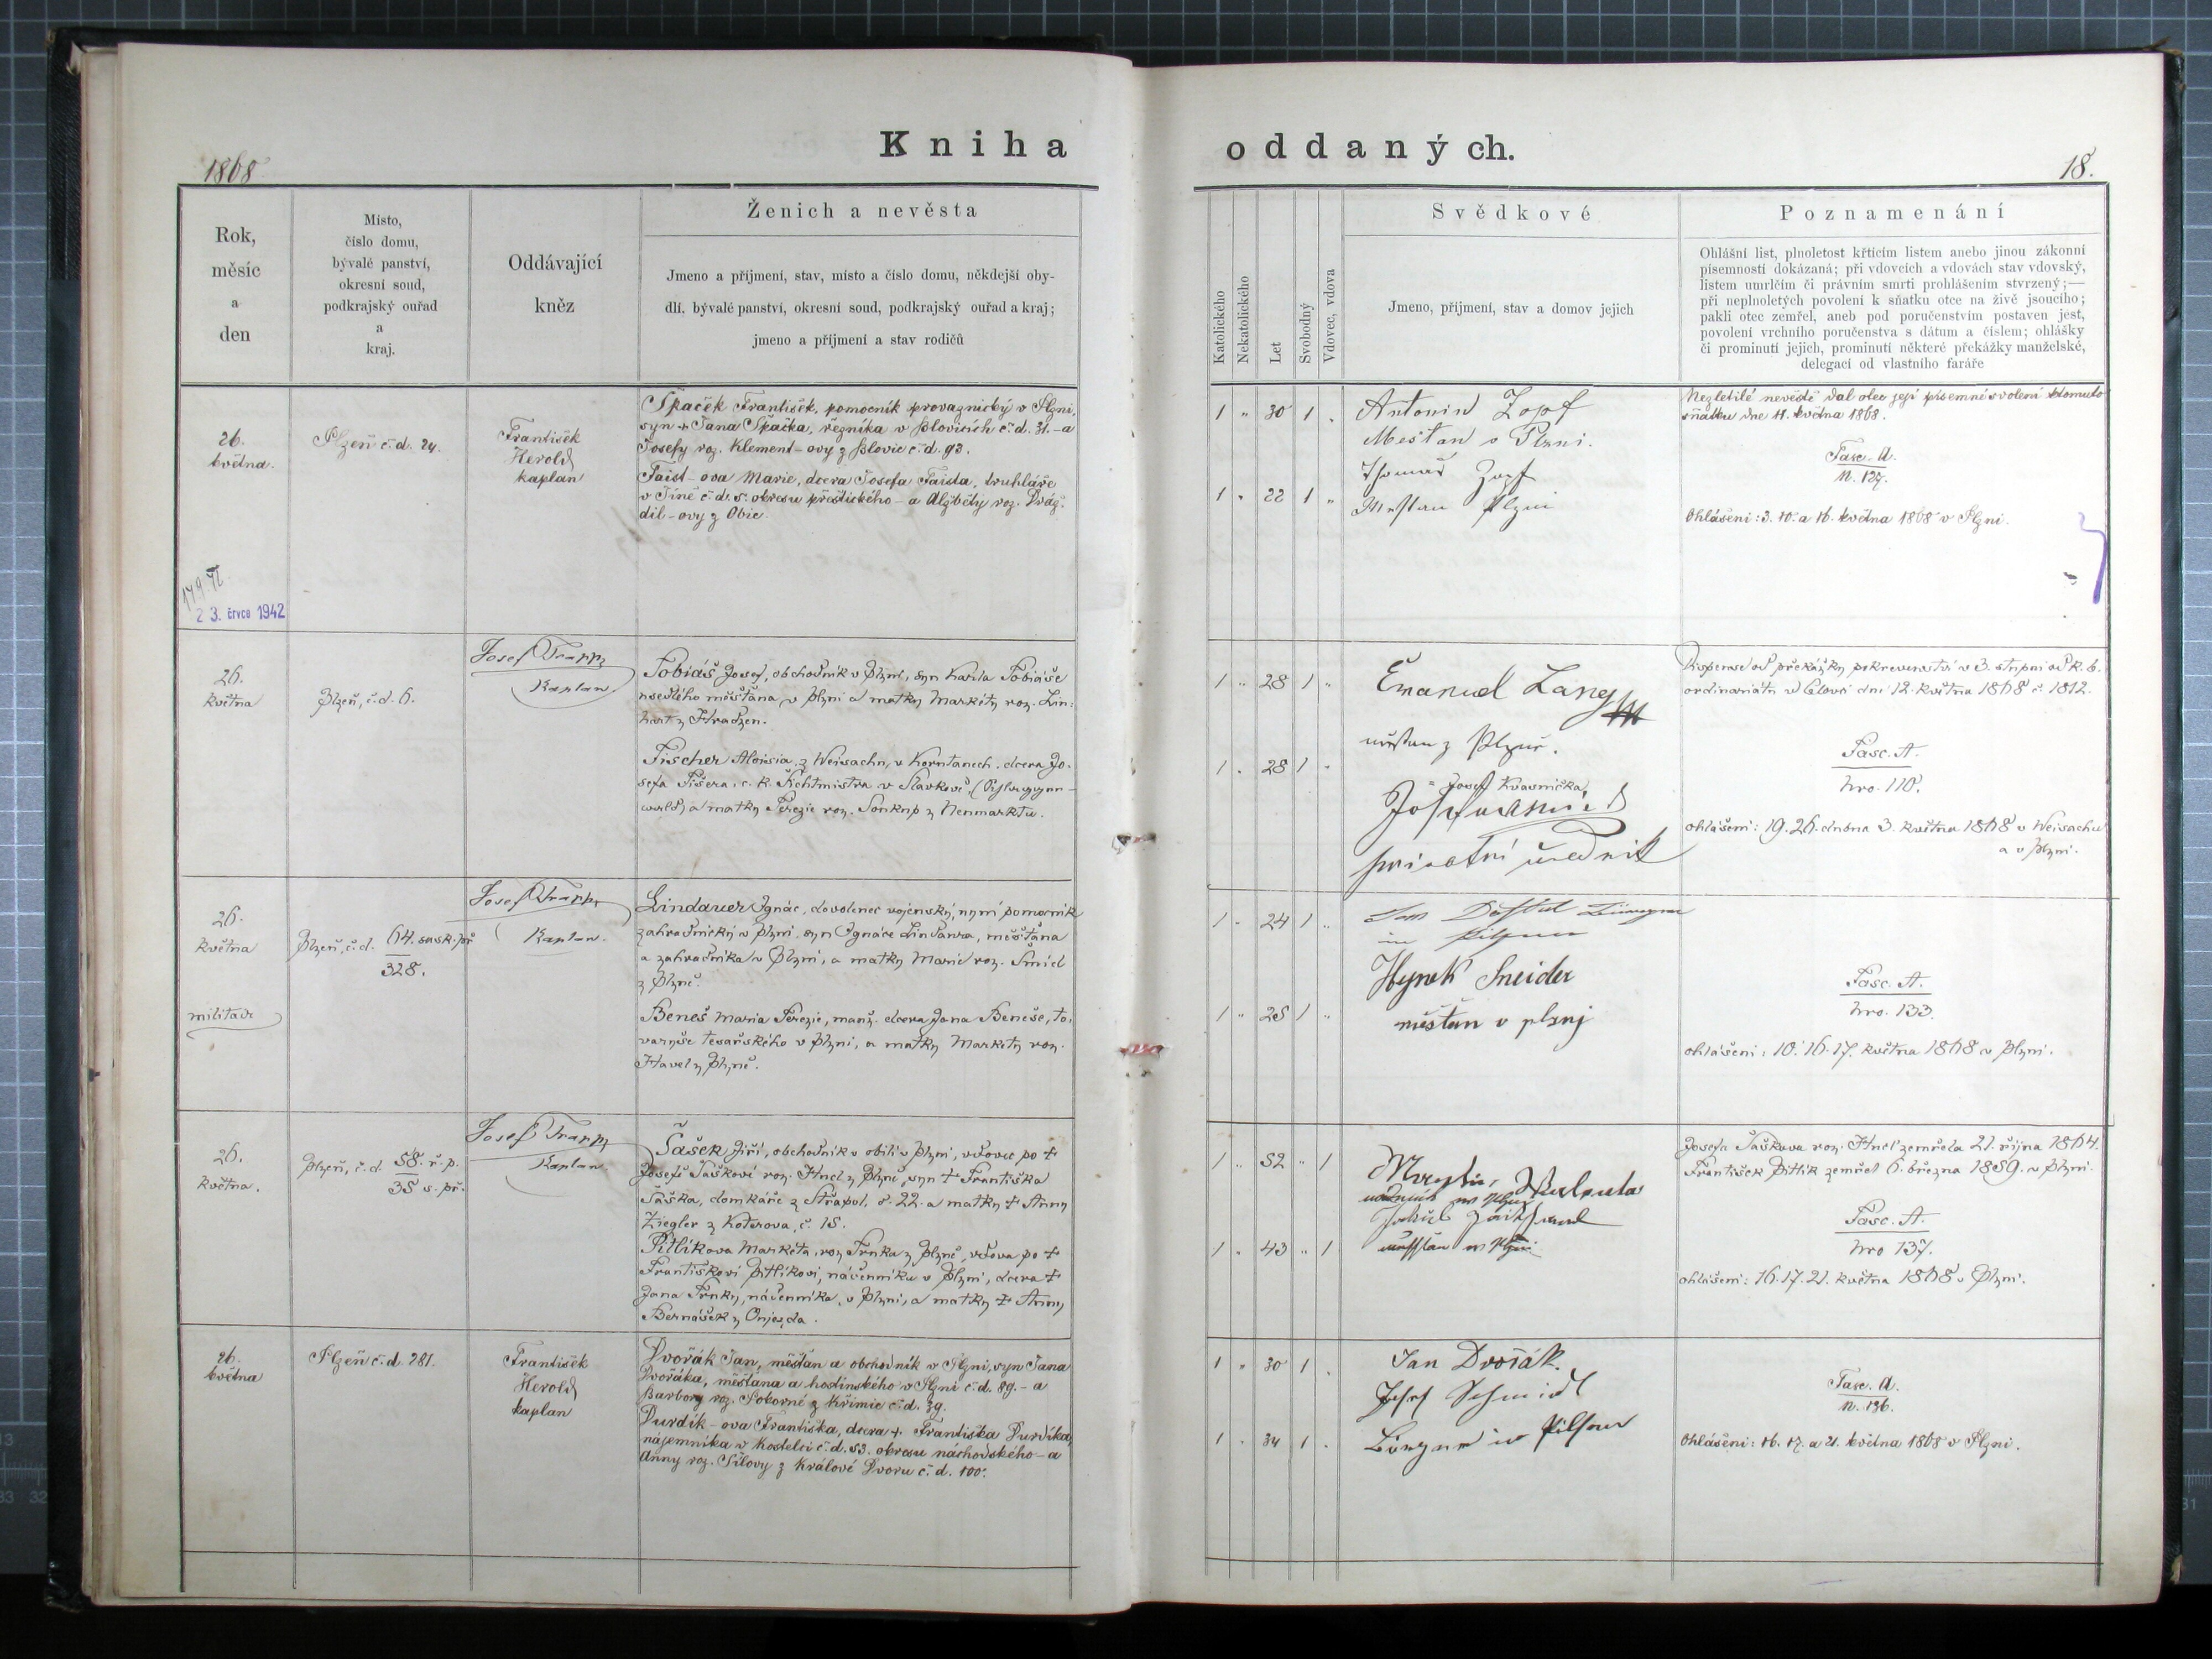 Kniha oddaných.
1868
18.
Rok,
měsíc
a
den
Místo,
číslo domu,
bývalé panství,
okresní soud,
podkrajský ouřad
a
kraj.
Oddávající
kněz
Ženich a nevěsta
Jmeno a příjmení, stav, místo a číslo domu, někdejší oby-
dlí. bývalé panství, okresní soud, podkrajský ouřad a kraj;
jmeno a příjmení a stav rodičů
Katolického
Nekatolického
Let
Svobodný
Vdovec, vdova
Svědkové
Jmeno, příjmení, stav a domov jejich
Poznamenání
Ohlášní list, plnoletost křticím listem anebo jinou zákonní
písemností dokázaná; při vdovcích a vdovách stav vdovský,
listem umrlčím či právním smrti prohlášením stvrzený;—
při neplnoletých povolení k sňatku otce na živě jsoucího;
pakli otec zemřel, aneb pod poručenstvím postaven jest,
povolení vrchního poručenstva s dátum a číslem; ohlášky
či prominutí jejich, prominutí některé překážky manželské,
delegací od vlastního faráře
26.
května.
Plzeň č. d. 24.
František
Herold
kaplan
Špaček František, pomocník provaznický v Plzni,
syn + Jana Špačka, řezníka v Blovicích č. d. 31. - a
Josefy roz. Klement-ovy z Blovic č. d. 93.
Faist-ova Marie, dcera Josefa Faista, truhláře
v Týně č. d. 5. okresu přeštického - a Alžběty roz. Tráz-
dil-ovy z Obic.
23. črvce 1942
1 " 30 1 "
1 " 22 1 "
Antonin Zopf
Mešťan v Plzni.
Thomas Zopf
Mešťan Plzni
Nezletilé nevěstě dal otec její písemné svolení k tomuto
sňatku dne 11. května 1868.
Fasc. A.
n. 127.
Ohlášeni: 3. 10. a 16. května 1868 v Plzni.
26.
května
Plzeň, č. d. 6.
Josef Trapp
Kaplan
Tobiáš Josef, obchodník v Plzni, syn Karla Tobiáše
usedlého měšťana v Plzni a matky Markéty roz. Lin-
hart z Hradzen.
Fischer Aloisia z Weisachu, v Korutanech, dcera Jo-
sefa Fišera, c. k. Šichtmistra v Slavkově,
a matky Terezie roz. z Neumarktu.
1 " 28 1 "
1 " 28 1 "
Emanuel Lang
měšťan z Plzně.
Josef Kvasnička
privatní úředník
Dispense od překážky pokrevenství v 3. stupni od k. b.
ordinariátu v Celovci dne 12. května 1868 č. 1812.
Fasc. A.
Nro. 110.
ohlášeni: 19. 26. dubna 3. května 1868 v Weisachu
a v Plzni.
26.
května
militär
Plzeň, č. d. 64. sask. př
328.
Josef Trapp
Kaplan.
Lindauer Ignác, dovolenec vojenský, nyní pomocník
zahradnický v Plzni, syn Ignáce Lindaura, měšťana
a zahradníka v Plzni, a matky Marie roz. Šmid
z Plzně.
Beneš Maria Terezie, manž. dcera Jana Beneše, to-
varyše tesařského v Plzni, a matky Markéty roz.
Havel z Plzně.
1 " 24 1 "
1 " 25 1 "
in Pilsen
Hynek Šneider
měšťan v plznj
Fasc. A.
Nro. 133.
ohlášeni: 10. 16. 17. května 1868 v Plzni.
26.
května.
Plzeň, č. d. 58. ř. p.
35 s. př.
Josef Trapp
Kaplan
Šašek Jiří, obchodník v obilí v Plzni, vdovec po +
Josefě Šaškové roz. z Plzně, syn + Františka
Šaška, domkáře z Střapol, č. 22. a matky + Anny
Ziegler z Koterova, č. 15.
Pitlíkova Markéta, roz. Trnka z Plzně, vdova po +
Františkovi Pitlíkovi, nádenníku v Plzni, dcera +
Jana Trnky, nádenníka v Plzni, a matky + Anny
Bernášek z Oujezda.
1 " 52 " 1
1 " 43 " 1
Josefa Šaškova roz. zemřela 21. října 1864.
František Pitlík zemřel 6. března 1859. v Plzni.
Fasc. A.
Nro 137.
ohlášeni: 16. 17. 21. května 1868 v Plzni.
26.
května
Plzeň č. d. 281.
František
Herold
kaplan
Dvořák Jan, měšťan a obchodník v Plzni, syn Jana
Dvořáka, měšťana a hostinského v Plzni č. d. 89. - a
Barbory roz. Pokorné z Křimic č. d. 39.
Durdík-ova Františka, dcera + Františka Durdíka,
nájemníka v Kostelci č. d. 53. okresu náchodského - a
Anny roz. Šílovy z Králové Dvoru č. d. 100.
1 " 30 1 .
1 " 34 1 .
Jan Dvořák.
Josef Schmidt
Bürger in Pilsen
Fasc. A.
n. 136.
Ohlášeni: 16. 17. a 21. května 1868 v Plzni.